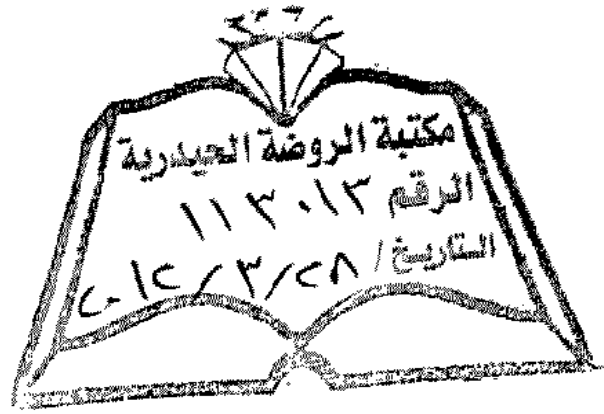 مكتبة الروضة الحيدرية
الرقم ١١٣٠١٣
التاريخ / ٢٠١٢/٣/٢٨